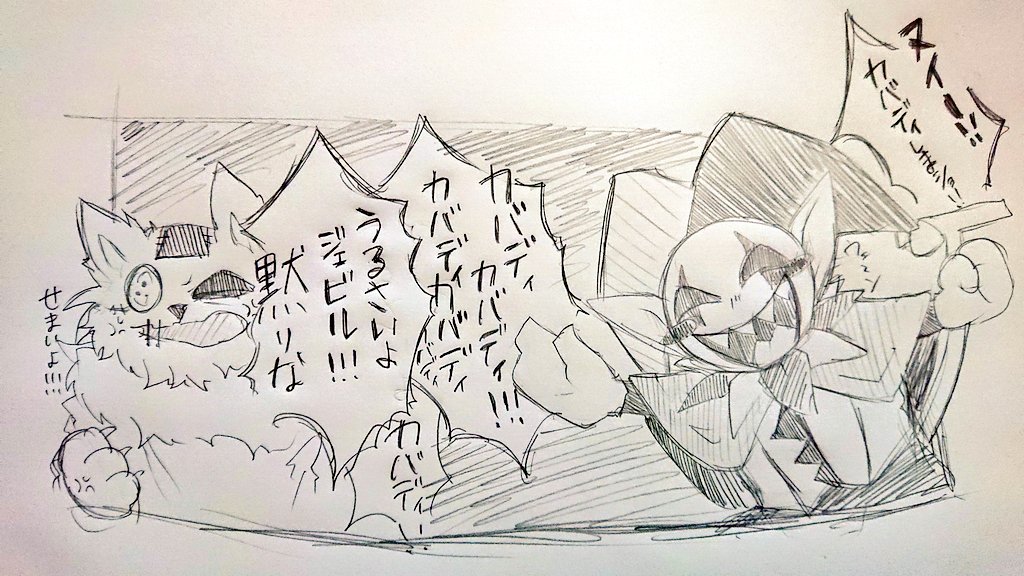 ヌイ!!!
カバディしましょー
カバディ
カバディ
カバディ!!!
カバディカバディ
カバディ
うるさいよ
ジェビル!!!
黙りな
せまいよ!!!